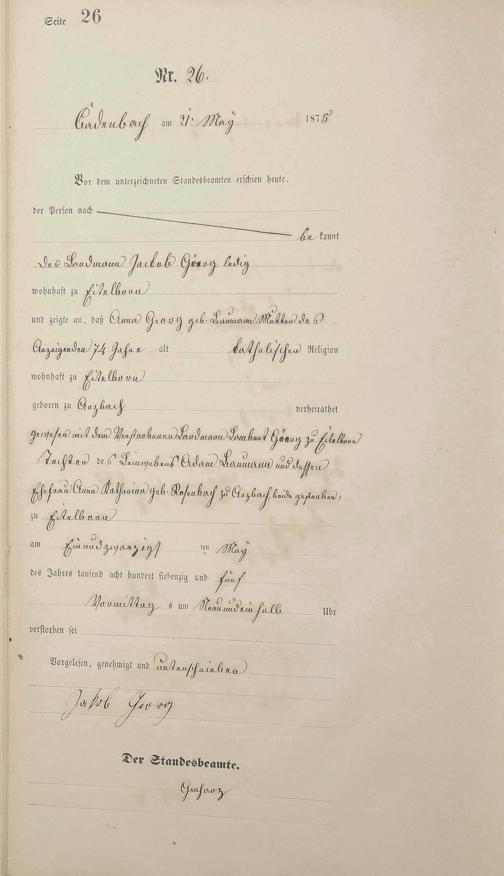 Seite 26
Nr. 26.
Cadenbach am 21. May 1875
Vor dem unterzeichneten Standesbeamten erschien heute,
der Person nach
be kannt
des Landmann Jackob Görg ledig
wohnhaft zu Eitelborn
und zeigte an, daß Anna Georg geb. Baumann Mutter des
Anzeigenden 74 Jahre alt katholischen Religion
wohnhaft zu Eitelborn
geboren zu Arzbach verheirathet
gewesen mit dem Verstorbenen Landmann Lambert Görg zu Eitelborn
Tochter des Leinwebers Adam Baumann und dessen
Ehefrau Anna Katharina geb. Rosenbach zu Arzbach, beide gestorben,
zu Eitelborn
am Einundzwanzigst ten May
des Jahres tausend acht hundert siebenzig und fünf
Vormittag s um Neunundeinhalb Uhr
verstorben sei
Vorgelesen, genehmigt und unterschrieben
Jakob Georg
Der Standesbeamte.